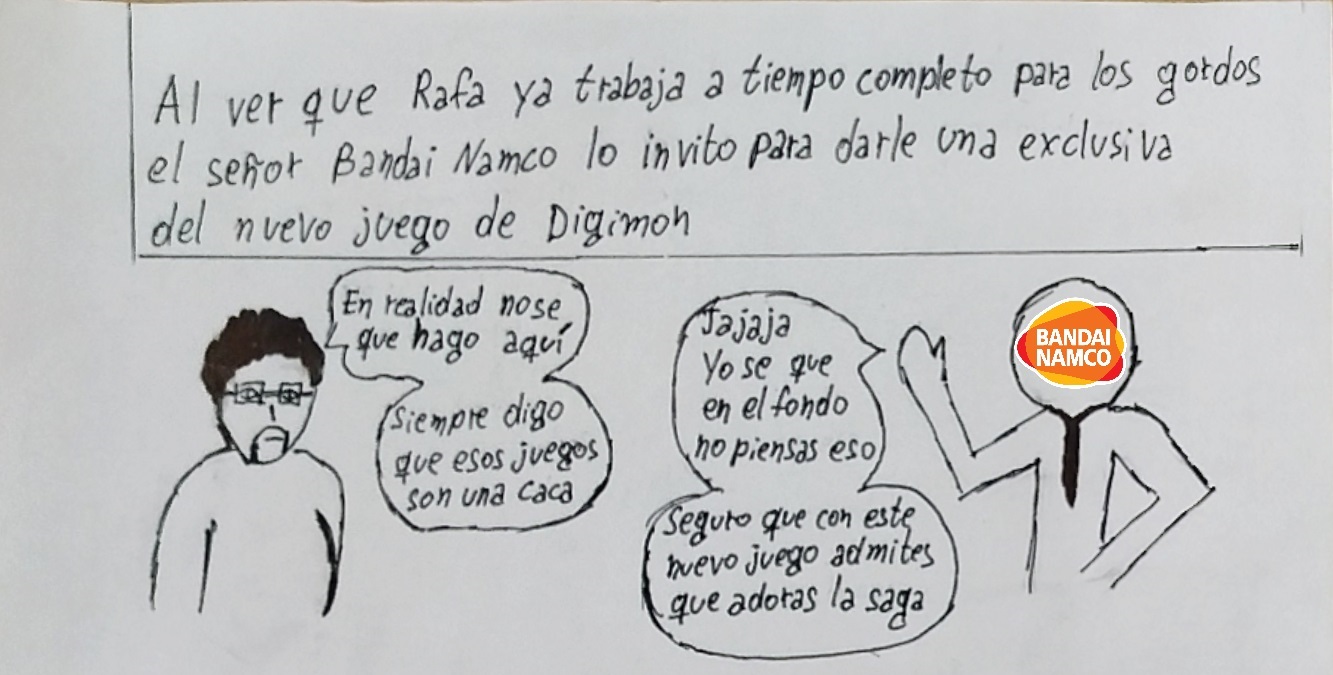 Al ver que Rafa ya trabaja a tiempo completo para los gordos
el señor Bandai Namco lo invito para darle una exclusiva
del nuevo juego de Digimon
En realidad nose
que hago aquí
Siempre digo
que esos juegos
son una caca
Jajaja
Yo se que
en el fondo
no piensas eso
Seguro que con este
nuevo juego admites
que adoras la saga
BANDAI
NAMCO